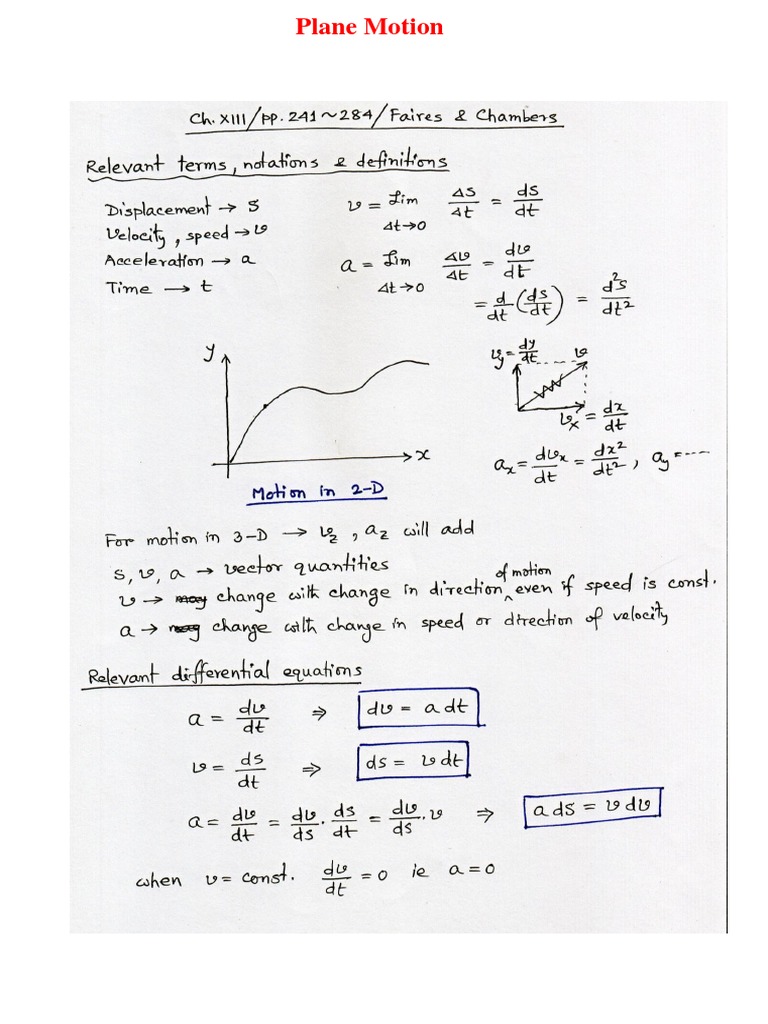 Plane Motion
Ch. XIII/pp. 241~284/Faires & Chambers
Relevant terms, notations & definitions
Displacement → s
Velocity, speed → v
Acceleration → a
Time → t
v = Lim Δt→0 Δs/Δt = ds/dt
a = Lim Δt→0 Δv/Δt = dv/dt
= d/dt (ds/dt) = d²s/dt²
y
x
Motion in 2-D
v_y = dy/dt
v
v_x = dx/dt
a_x = dv_x/dt = dx²/dt², a_y = ----
For motion in 3-D → v_z, a_z will add
s, v, a → vector quantities
v → may change with change in direction of motion even if speed is const.
a → may change with change in speed or direction of velocity
Relevant differential equations
a = dv/dt ⇒ dv = a dt
v = ds/dt ⇒ ds = v dt
a = dv/dt = dv/ds . ds/dt = dv/ds . v ⇒ a ds = v dv
when v = const. dv/dt = 0 ie a = 0